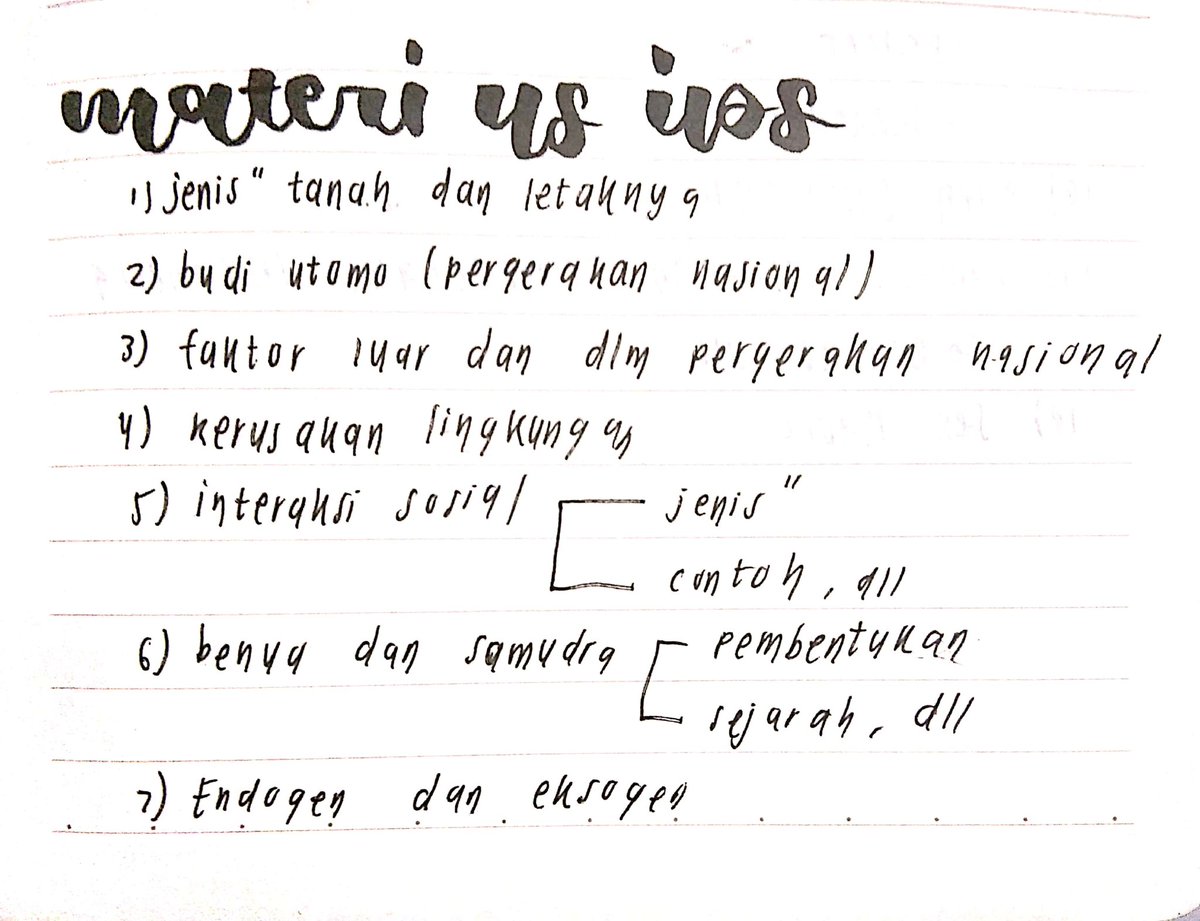 materi us ips
1) jenis" tanah dan letaknya
2) budi utomo (pergerakan nasional)
3) faktor luar dan dlm pergerakan nasional
4) kerusakan lingkungan
5) interaksi sosial jenis"
contoh, dll
6) benua dan samudra pembentukan
sejarah, dll
7) Endogen dan eksogen